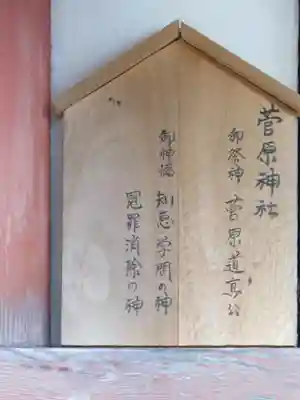 菅原神社
御祭神 菅原道真公
御神徳 知恵学問の神
冤罪消除の神